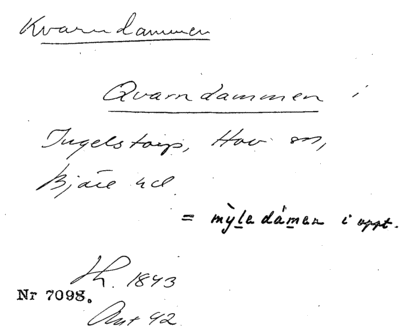 Kvarndammen
Qvarndammen i
Ingelstorp, Hov sn,
Bjäre hd.
= mỳledámen i uppt.
Lh. 1843
Nr 7098.
Ant 42